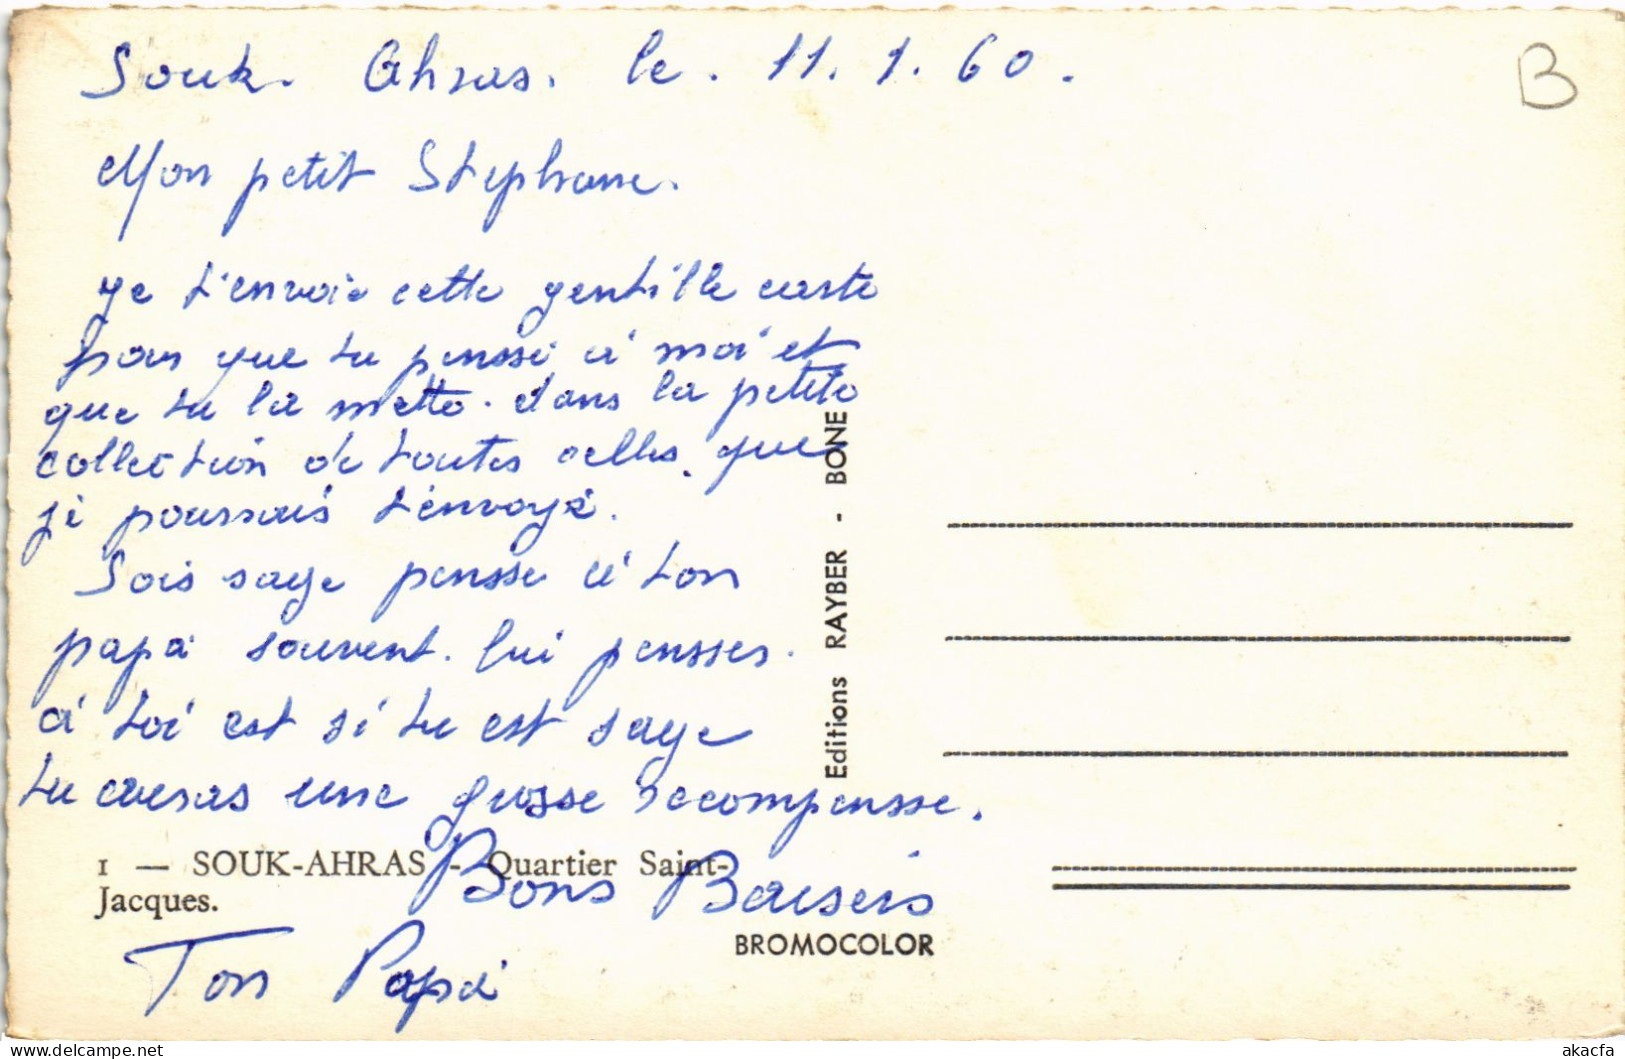 Souk. Ahras. le. 11. 1. 60.
B
Mon petit Stephane.
Je t'envoie cette gentille carte
pour que tu pensse à moi et
que tu la mette. dans la petite
collection de toutes celles. que
je pourrais t'envoyé.
Sois sage pensse à ton
papa souvent. lui pensses.
à toi est si tu est sage
tu auras une grosse recompensse.
1 — SOUK-AHRAS - Quartier Saint-
Jacques.
Bons Baisers
Ton Papa
BROMOCOLOR
Editions RAYBER - BONE
akacfa